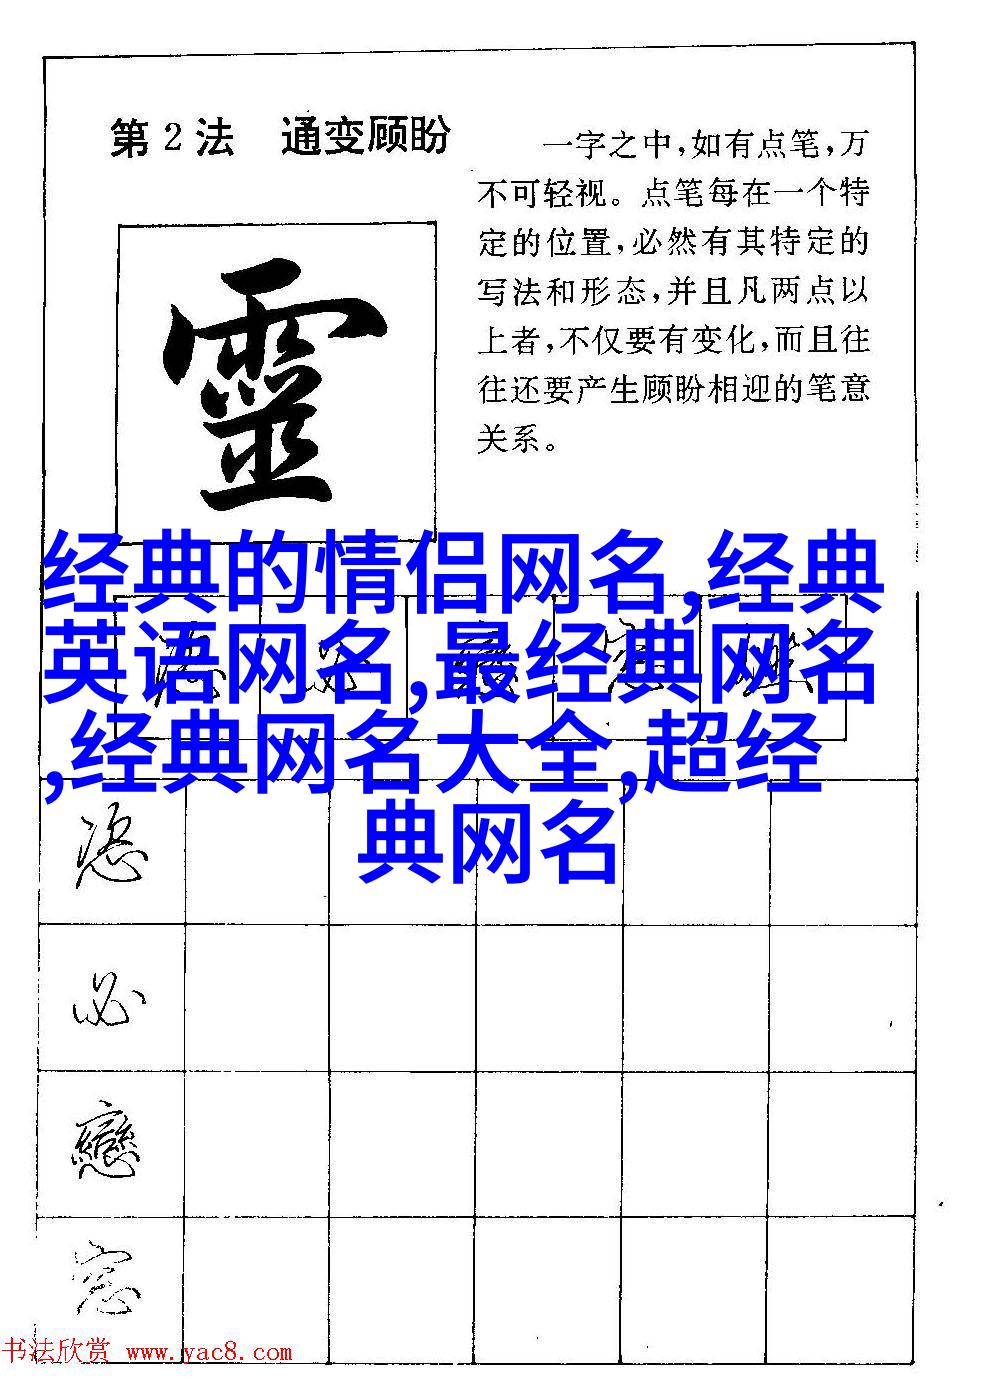 第2法 通变顾盼
一字之中,如有点笔,万
不可轻视。点笔每在一个特
定的位置,必然有其特定的
写法和形态,并且凡两点以
上者,不仅要有变化,而且往
往还要产生顾盼相迎的笔意
关系。
靈
经典的情侣网名,经典
英语网名,最经典网名
,经典网名大全,超经
典网名
恣
必
戀
窓
书法欣赏 www.yac8.com